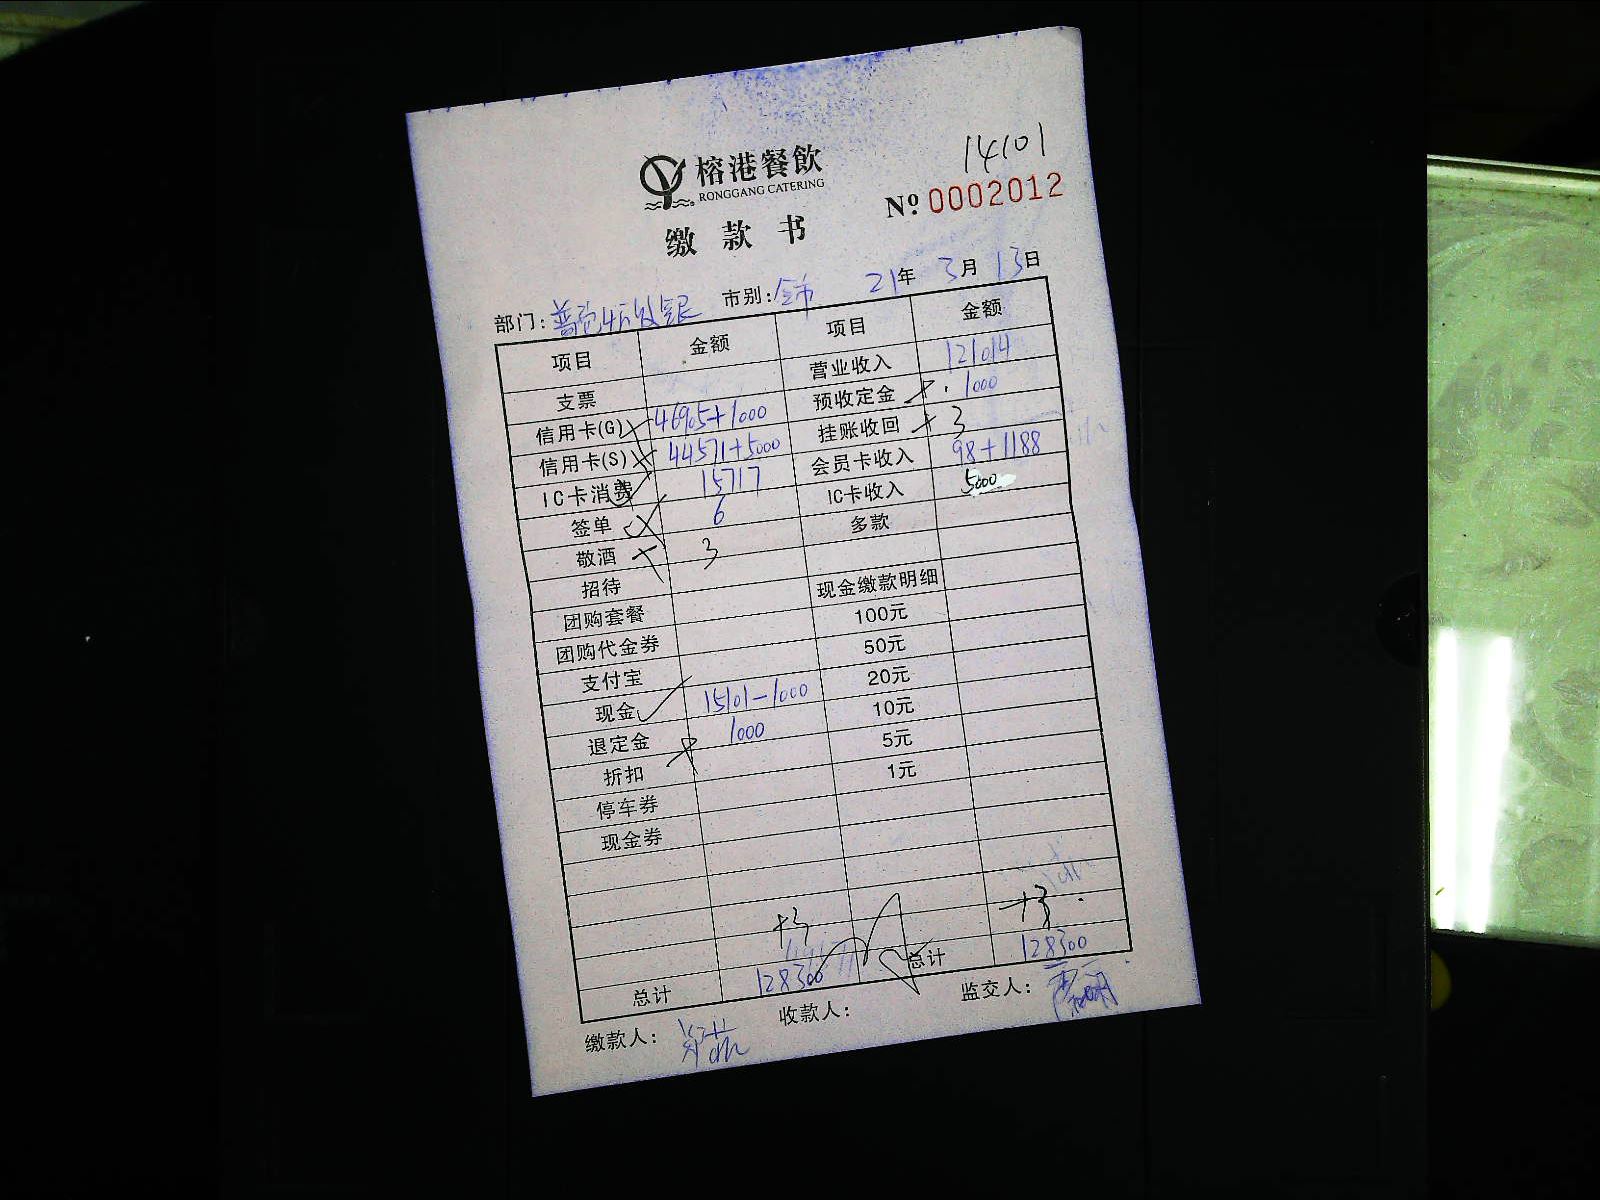 14101
榕港餐飲
RONGGANG CATERING
Nº 0002012
缴款书
部门: 市别: 全市 21年 3月 13日
项目 金额 项目 金额
支票 营业收入 121014
信用卡(G) 46905+1000 预收定金 1000
信用卡(S) 44571+5000 挂账收回 +3
IC卡消费 15717 会员卡收入 98+1188
签单 6 IC卡收入 5000
敬酒 3 多款
招待
团购套餐 现金缴款明细
团购代金券 100元
支付宝 50元
现金 15101-1000 20元
退定金 1000 10元
折扣 5元
停车券 1元
现金券
+3 +3
总计 128300 总计 128300
缴款人: 收款人: 监交人: